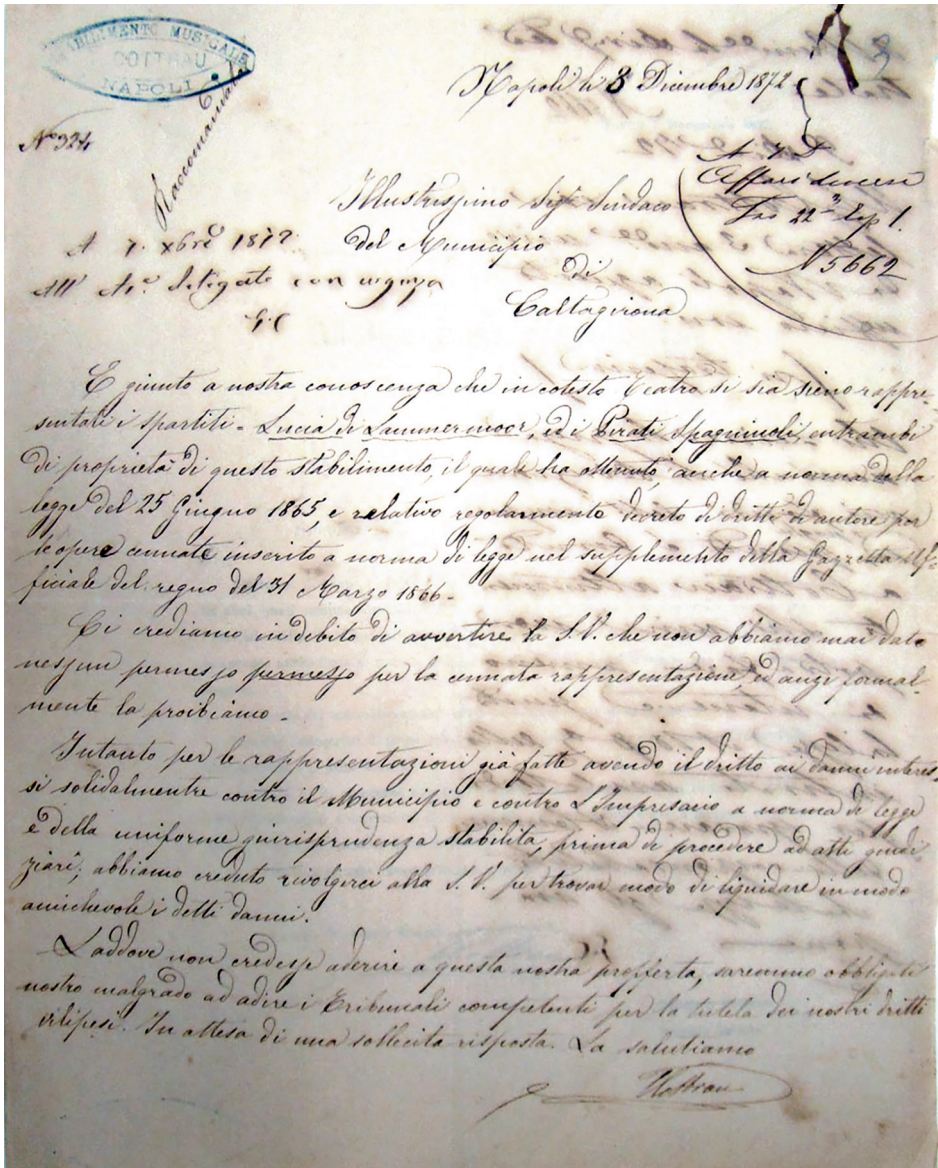 STABILIMENTO MUSICALE
COTTRAU
NAPOLI
Napoli li 3 Dicembre 1872
Raccomandata
No 324
A 7 D
Affari diversi
Fas 22
N 5662
Illustrissimo Sigr Sindaco
del Municipio
di
Caltagirona
A 7. Xbre 1872
All' con urgenza
E giunto a nostra conoscenza che in cotesto Teatro si sia sieno rappre-
sentati i spartiti - Lucia di Lammermoor, ed i Pirati Spagnuoli, entrambi
di proprietà di questo stabilimento, il quale ha ottenuto, anche a norma della
legge del 25 Giugno 1865, e relativo regolarmente decreto di dritti di autore per
le opere cennate inscrito a norma di legge nel supplemento della Gazzetta Uf-
ficiale del regno del 31 Marzo 1866-
Ci crediamo in debito di avvertire la S.V. che non abbiamo mai dato
nessun permesso permesso per la cennata rappresentazione, ed anzi formal-
mente la proibiamo -
Intanto per le rappresentazioni già fatte avendo il dritto ai danni interes-
si solidalmentre contro il Municipio e contro L'Impresario a norma di legge
e della uniforme giurisprudenza stabilita, prima di procedere ad atti giudi
ziarî; abbiamo creduto rivolgerci alla S.V. per trovar modo di liquidare in modo
amichevole i detti danni.
Laddove non credesse aderire a questa nostra profferta, saremmo obbligati
nostro malgrado ad adire i Tribunali competenti per la tutela dei nostri dritti
vilipesi. In attesa di una sollecita risposta. La salutiamo
Cottrau